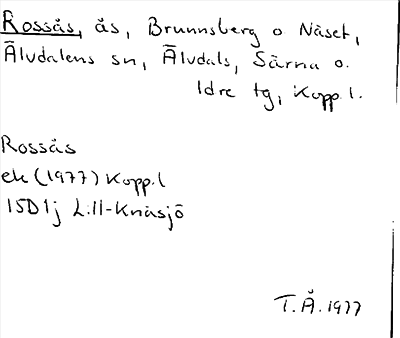 Rossås, ås, Brunnsberg o Näset,
Älvdalens sn, Älvdals, Särna o.
Idre tg, Kopp. l.
Rossås
ek (1977) Kopp. l
15D1j Lill-Knäsjö
T. Å. 1977